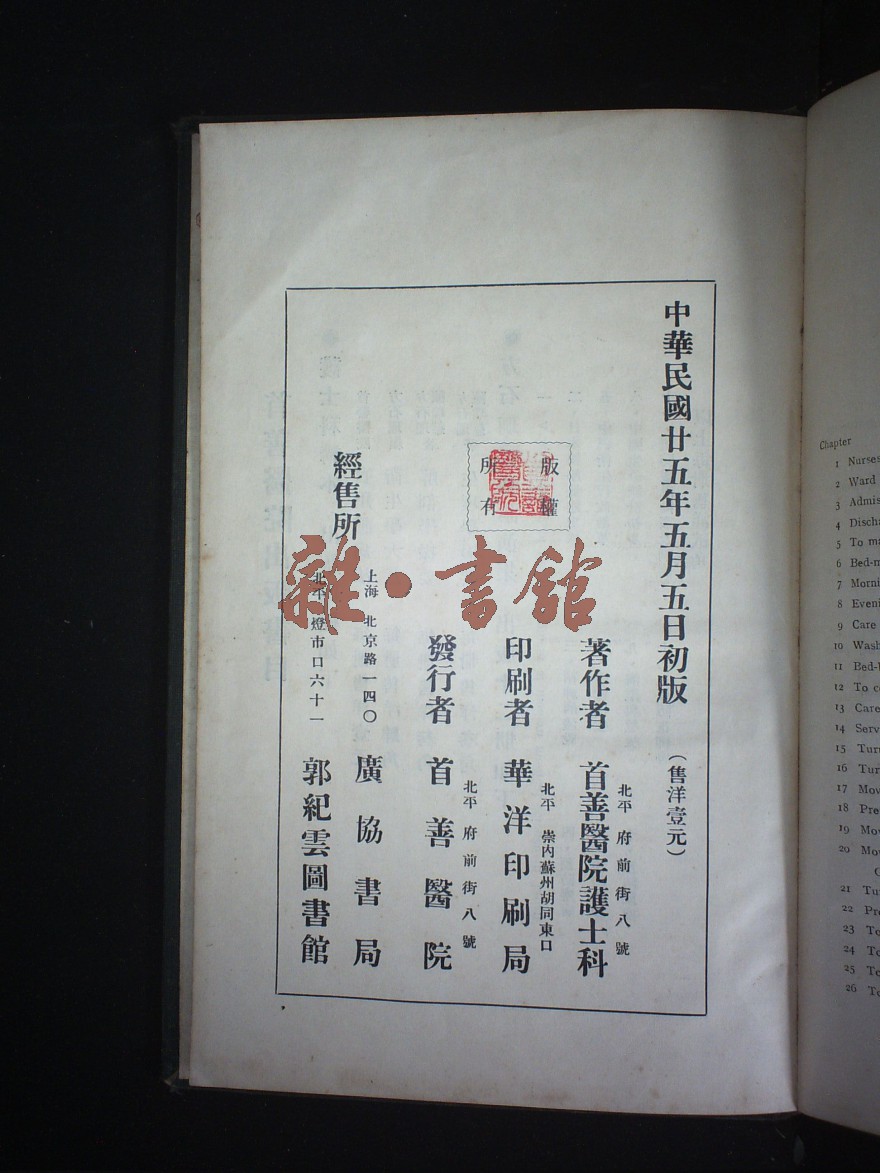 中華民國廿五年五月五日初版
（售洋壹元）
版權
所有
北平 府前街八號
著作者 首善醫院護士科
北平 崇內蘇州胡同東口
印刷者 華洋印刷局
北平 府前街八號
發行者 首善醫院
經售所
上海 北京路一四〇 廣協書局
北平 燈市口六十一 郭紀雲圖書館
雜·書館
Chapter
1 Nurses
2 Ward
3 Admis
4 Discha
5 To ma
6 Bed-m
7 Morni
8 Eveni
9 Care
10 Wash
11 Bed-
12 To c
13 Care
14 Serv
15 Turn
16 Tur
17 Mov
18 Pre
19 Mo
20 Mo
21 Tu
22 Pr
23 To
24 To
25 To
26 To